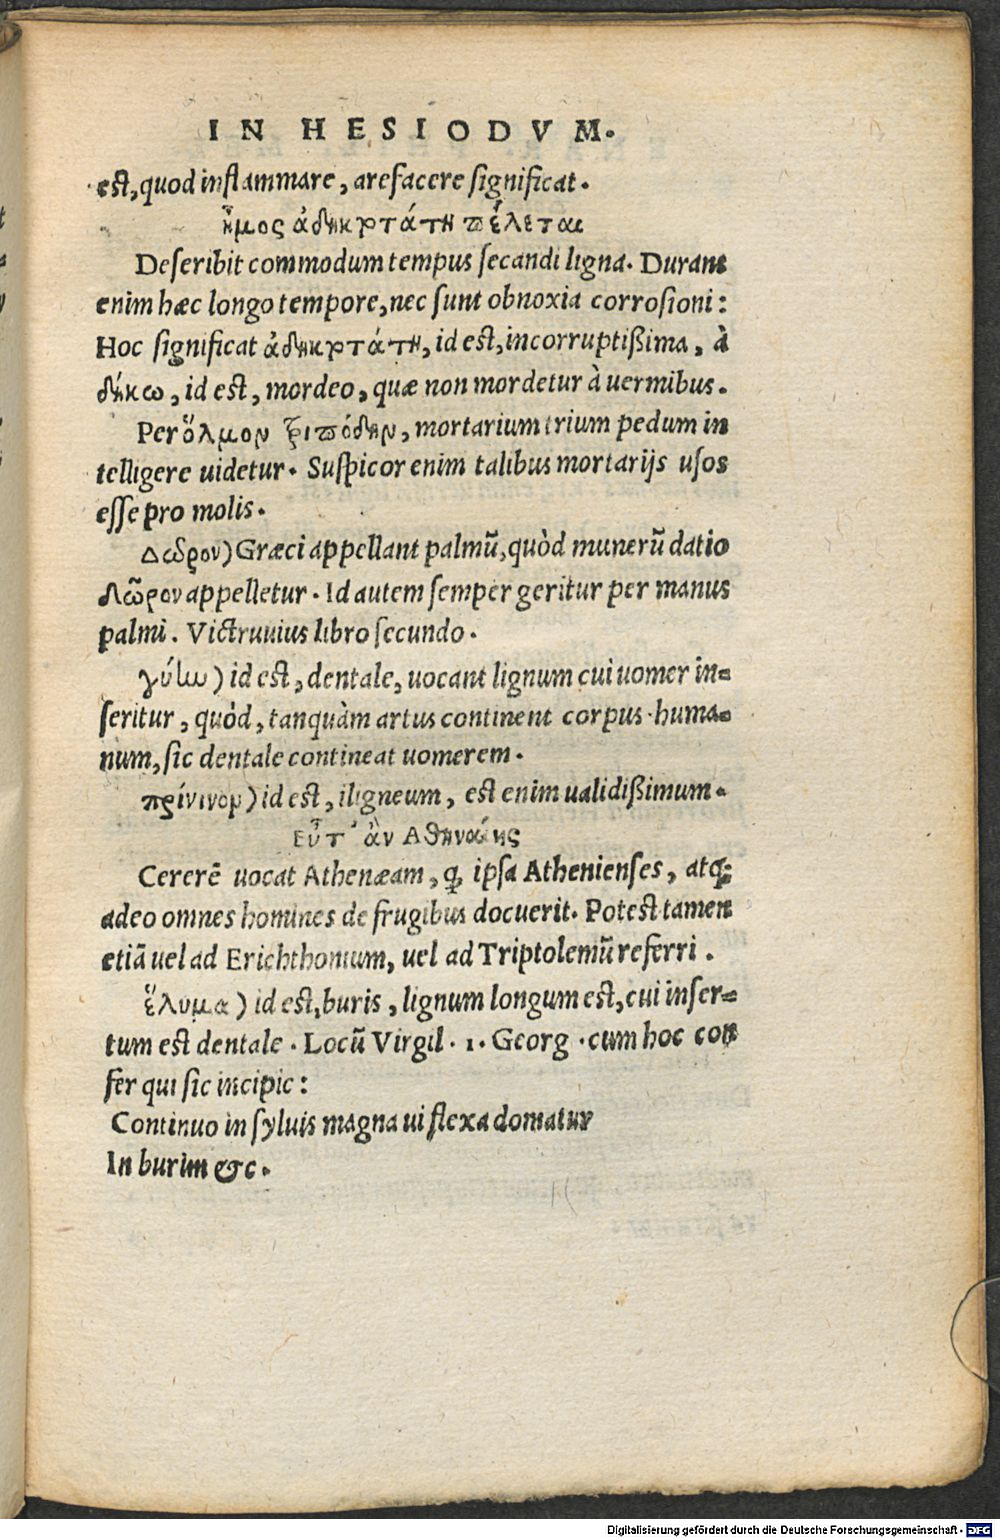 IN HESIODVM.
est, quod inflammare, arefacere significat.
ἦμος ἀδηκτοτάτη πέλεται
Describit commodum tempus secandi ligna. Durant
enim hæc longo tempore, nec sunt obnoxia corrosioni:
Hoc significat ἀδηκτοτάτη, id est, incorruptißima, à
δήκω, id est, mordeo, quæ non mordetur à uermibus.
Per ὅλμον τριπόδην, mortarium trium pedum in
telligere uidetur. Suspicor enim talibus mortarijs usos
esse pro molis.
Δεδρον) Græci appellant palmũ, quòd munerũ datio
δῶρον appelletur. Id autem semper geritur per manus
palmi. Victruuius libro secundo.
id est, dentale, uocant lignum cui uomer in=
seritur, quòd, tanquàm artus continent corpus huma=
num, sic dentale contineat uomerem.
πρίνινον) id est, iligneum, est enim ualidißimum.
Εὖτ' ἂν Ἀθηναίης
Cererẽ uocat Athenæam, ꝙ ipsa Athenienses, atq;
adeo omnes homines de frugibus docuerit. Potest tamen
etiã uel ad Erichthonium, uel ad Triptolemũ referri.
ἔλυμα) id est, buris, lignum longum est, cui inser=
tum est dentale. Locũ Virgil. 1. Georg. cum hoc con
fer qui sic incipic:
Continuo in syluis magna ui flexa domatur
In burim &c.
Digitalisierung gefördert durch die Deutsche Forschungsgemeinschaft - DFG